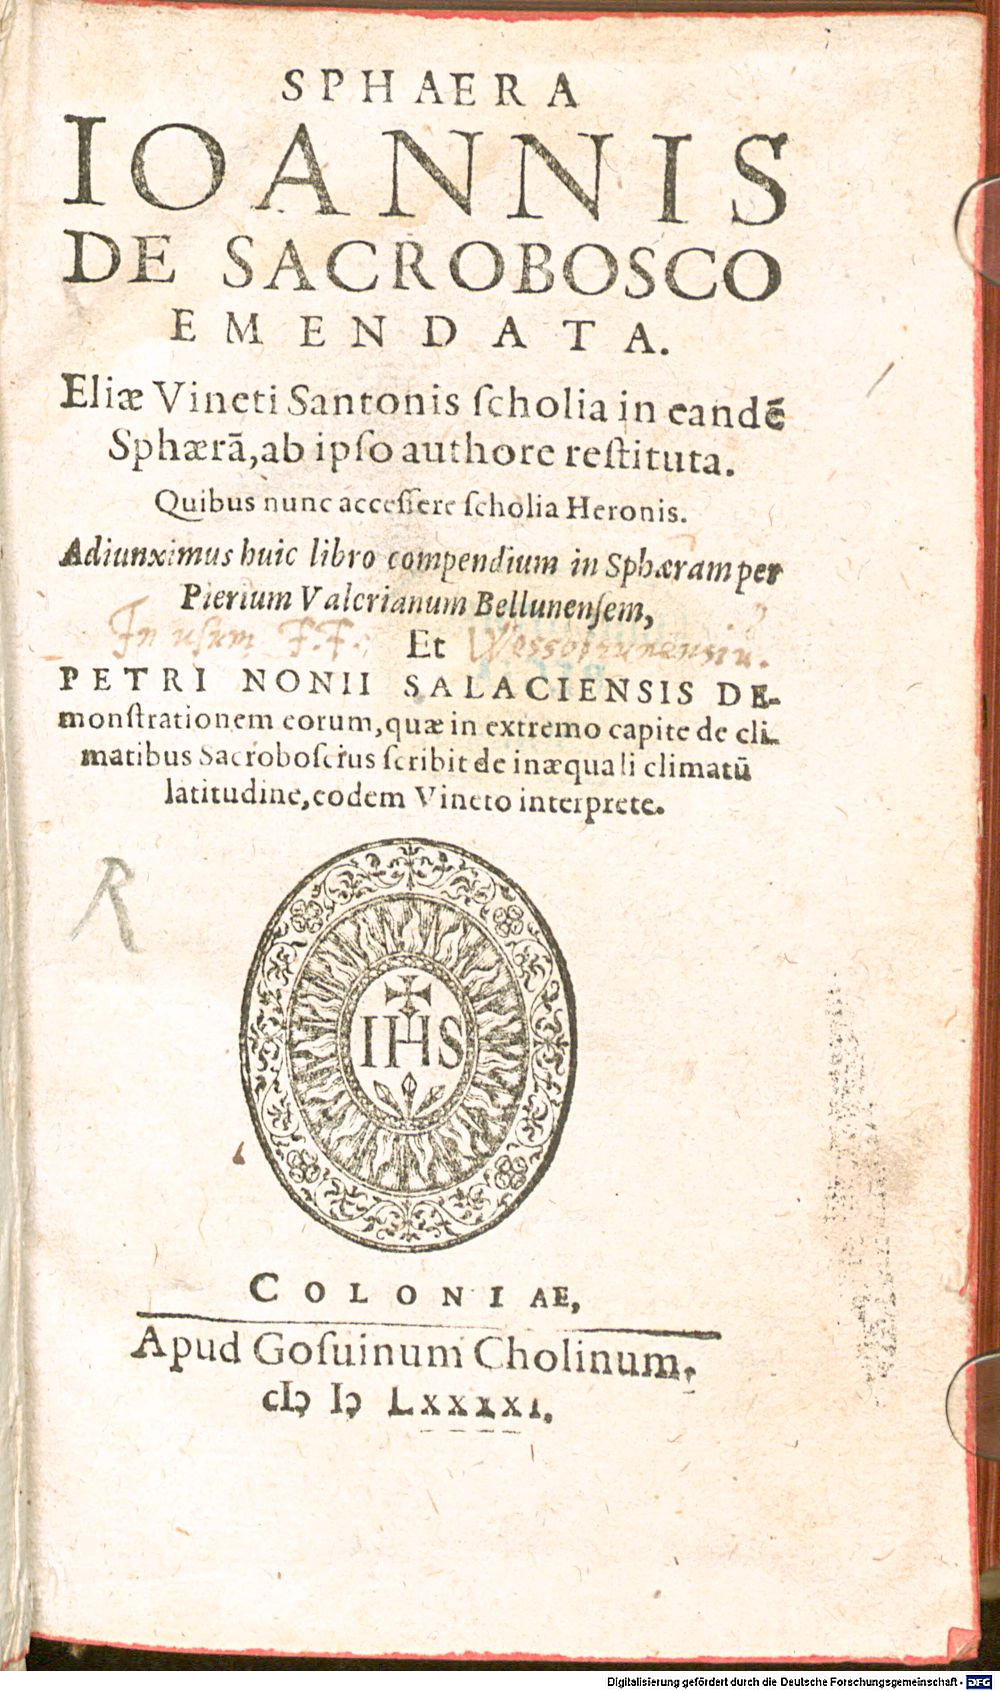 SPHAERA
IOANNIS
DE SACROBOSCO
EMENDATA.
Eliæ Vineti Santonis ſcholia in eandē
Sphærā, ab ipſo authore reſtituta.
Quibus nunc acceſſere ſcholia Heronis.
Adiunximus huic libro compendium in Sphæram per
Pierium Valerianum Bellunenſem,
In usum F.F. Wessofrunensiu.
Et
PETRI NONII SALACIENSIS DE-
monſtrationem eorum, quæ in extremo capite de cli-
matibus Sacroboſcius ſcribit de inæquali climatū
latitudine, eodem Vineto interprete.
R
IHS
COLONIAE,
Apud Goſuinum Cholinum,
cIↄ Iↄ LXXXXI.
Digitalisierung gefördert durch die Deutsche Forschungsgemeinschaft - DFG